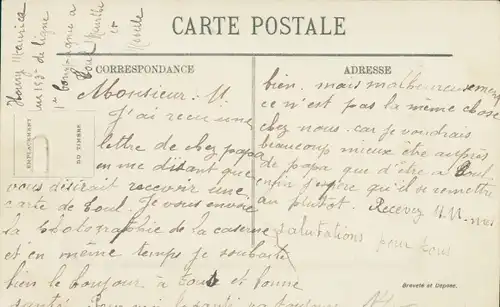 CARTE POSTALE
Henry Maurice
au 153e de ligne
1re compagnie a
Toul Meurthe
et
Moselle
CORRESPONDANCE
EMPLACEMENT
DU TIMBRE
Monsieur. M.
J'ai recu une
lettre de chez papa
en me disant que
vous désirait recevoir une
carte de Toul. Je vous envoie
la Photographie de la caserne
et en même temps je souhaite
bien le bonjour à tous et bonne
santé
ADRESSE
bien. mais malheureusement
ce n'est pas la même chose
chez nous. car je voudrais
beaucoup mieux être auprès
de papa que d'être a Toul
enfin j'espère qu'il se remettra
au plutot. Recevez M. M. mes
salutations pour tous
Breveté et Déposé.